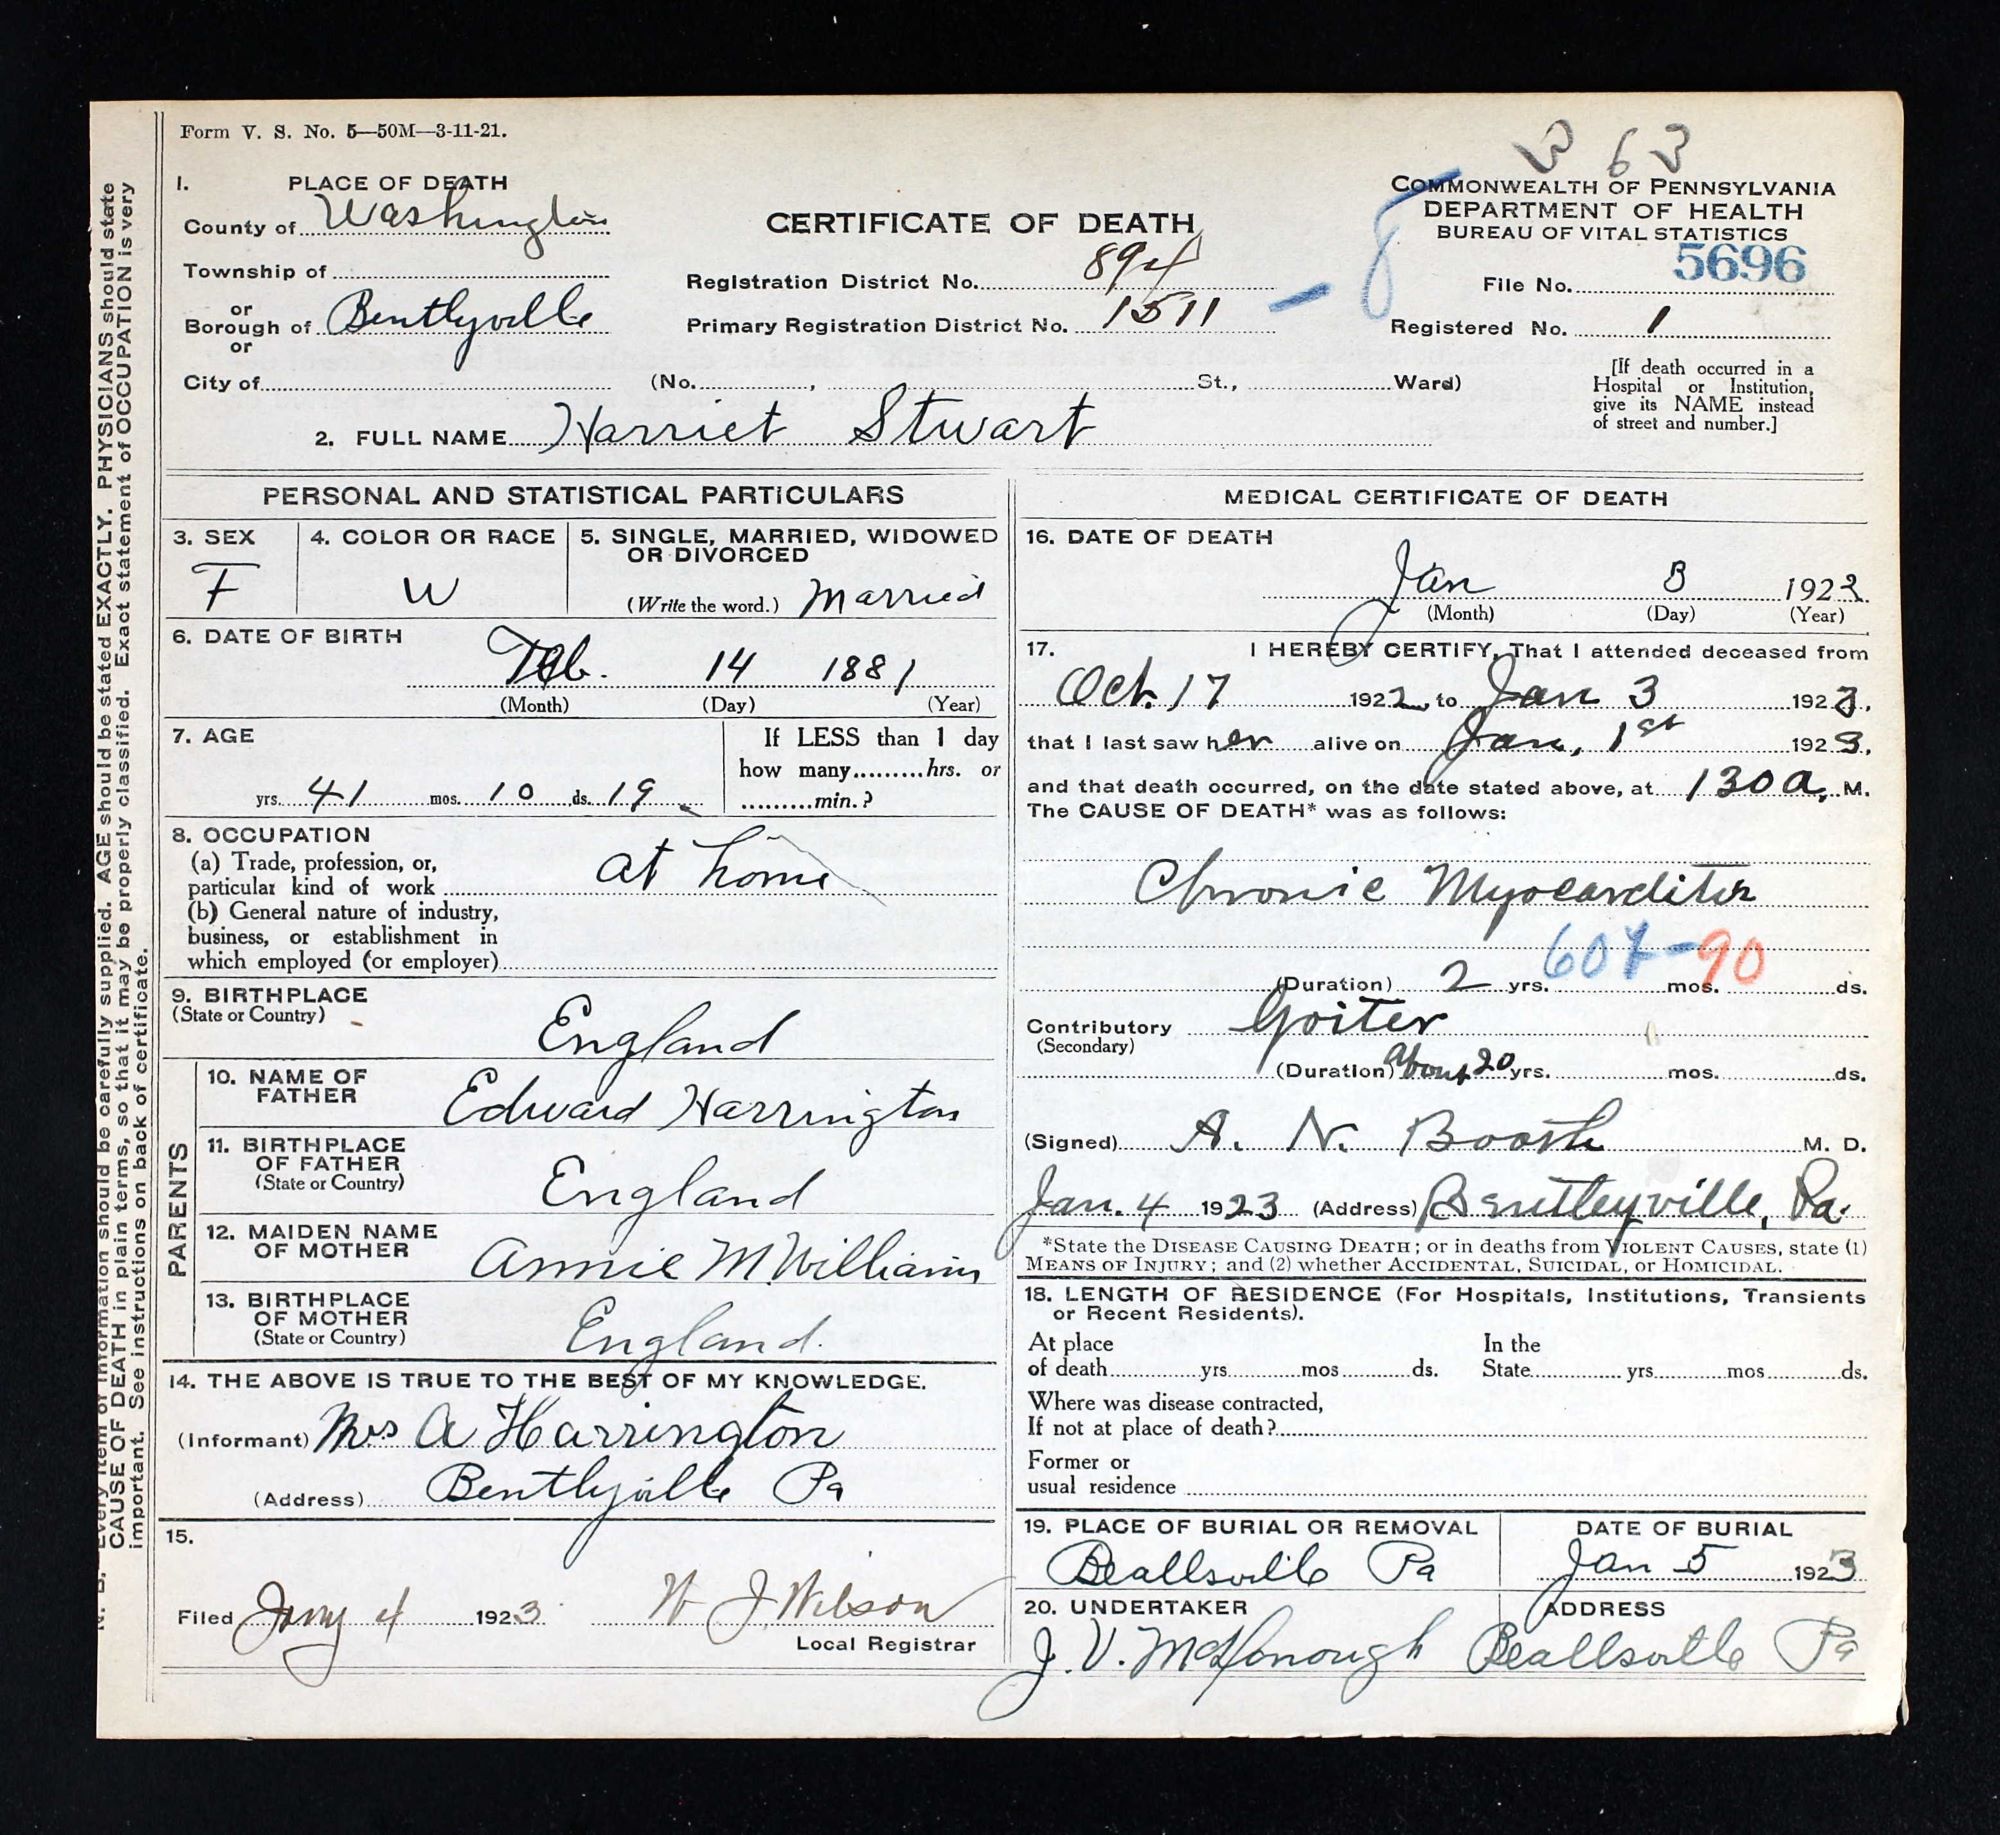 Form V. S. No. 5—50M—3-11-21.
363
1. PLACE OF DEATH
County of Washington
Township of
or
Borough of Bentlyville
or
City of
CERTIFICATE OF DEATH
Registration District No. 894
Primary Registration District No. 1511
(No. , St., Ward)
COMMONWEALTH OF PENNSYLVANIA
DEPARTMENT OF HEALTH
BUREAU OF VITAL STATISTICS
File No. 5696
Registered No. 1
[If death occurred in a
Hospital or Institution,
give its NAME instead
of street and number.]
2. FULL NAME Harriet Stuart
PERSONAL AND STATISTICAL PARTICULARS
3. SEX
F
4. COLOR OR RACE
W
5. SINGLE, MARRIED, WIDOWED
OR DIVORCED
(Write the word.) Married
6. DATE OF BIRTH
Feb. 14 1881
(Month) (Day) (Year)
7. AGE
yrs. 41 mos. 10 ds. 19
If LESS than 1 day
how many hrs. or
min.?
8. OCCUPATION
(a) Trade, profession, or,
particular kind of work at home
(b) General nature of industry,
business, or establishment in
which employed (or employer)
9. BIRTHPLACE
(State or Country)
England
PARENTS
10. NAME OF
FATHER
Edward Harrington
11. BIRTHPLACE
OF FATHER
(State or Country)
England
12. MAIDEN NAME
OF MOTHER
Annie M. Williams
13. BIRTHPLACE
OF MOTHER
(State or Country)
England.
14. THE ABOVE IS TRUE TO THE BEST OF MY KNOWLEDGE.
(Informant) Mrs A Harrington
(Address) Bentlyville Pa
15.
Filed Jany 4 1923 W J Wilson
Local Registrar
MEDICAL CERTIFICATE OF DEATH
16. DATE OF DEATH
Jan 3 1923
(Month) (Day) (Year)
17. I HEREBY CERTIFY, That I attended deceased from
Oct. 17 1922, to Jan 3 1923,
that I last saw her alive on Jan, 1st 1923,
and that death occurred, on the date stated above, at 130 a. M.
The CAUSE OF DEATH* was as follows:
Chronic Myocarditis
90
(Duration) 2 yrs. mos. ds.
Contributory Goiter
(Secondary)
(Duration) About 20 yrs. mos. ds.
(Signed) A. N. Booth M. D.
Jan. 4 1923 (Address) Bentleyville, Pa.
*State the DISEASE CAUSING DEATH; or in deaths from VIOLENT CAUSES, state (1)
MEANS OF INJURY; and (2) whether ACCIDENTAL, SUICIDAL, or HOMICIDAL.
18. LENGTH OF RESIDENCE (For Hospitals, Institutions, Transients
or Recent Residents).
At place
of death yrs. mos ds.
In the
State yrs. mos ds.
Where was disease contracted,
If not at place of death?
Former or
usual residence
19. PLACE OF BURIAL OR REMOVAL
Beallsville Pa
DATE OF BURIAL
Jan 5 1923
20. UNDERTAKER
J. V. McDonough
ADDRESS
Beallsville Pa
N. B. Every item of information should be carefully supplied. AGE should be stated EXACTLY. PHYSICIANS should state
CAUSE OF DEATH in plain terms, so that it may be properly classified. Exact statement of OCCUPATION is very
important. See instructions on back of certificate.